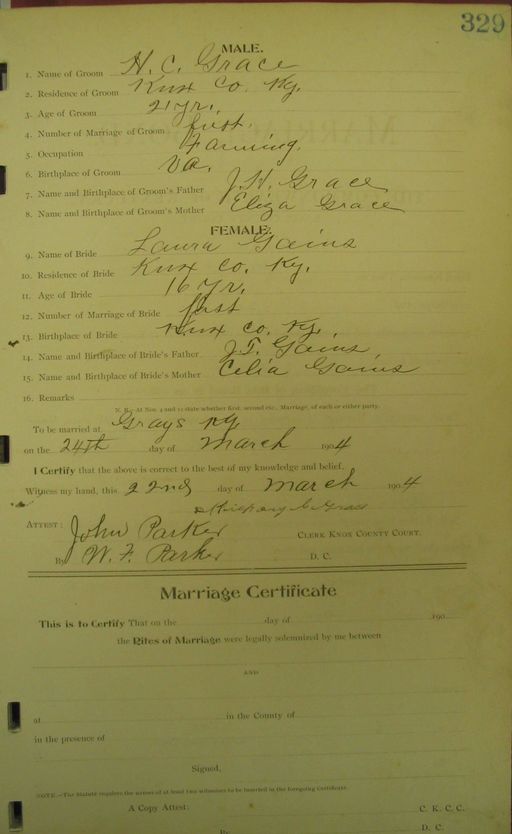 329
MALE.
1. Name of Groom H. C. Grace
2. Residence of Groom Knox Co. Ky.
3. Age of Groom 21 yr.
4. Number of Marriage of Groom first.
5. Occupation Farming.
6. Birthplace of Groom Va.
7. Name and Birthplace of Groom's Father J. H. Grace
8. Name and Birthplace of Groom's Mother Eliza Grace
FEMALE.
9. Name of Bride Laura Gains
10. Residence of Bride Knox Co. Ky.
11. Age of Bride 16 yr.
12. Number of Marriage of Bride first
13. Birthplace of Bride Knox Co. Ky.
14. Name and Birthplace of Bride's Father J. T. Gains
15. Name and Birthplace of Bride's Mother Celia Gains
16. Remarks
N. B.—At Nos. 4 and 12 state whether first, second etc., Marriage, of each or either party.
To be married at Grays Ky.
on the 24th day of March 1904
I Certify that the above is correct to the best of my knowledge and belief.
Witness my hand, this 22nd day of March 1904
Grace
ATTEST: John Parker CLERK KNOX COUNTY COURT.
By W. F. Parker D. C.
Marriage Certificate
This is to Certify That on the day of 190
the Rites of Marriage were legally solemnized by me between
AND
at in the County of
in the presence of
Signed,
NOTE.—The Statute requires the names of at least two witnesses to be inserted in the foregoing Certificate.
A Copy Attest: C. K. C. C.
By D. C.